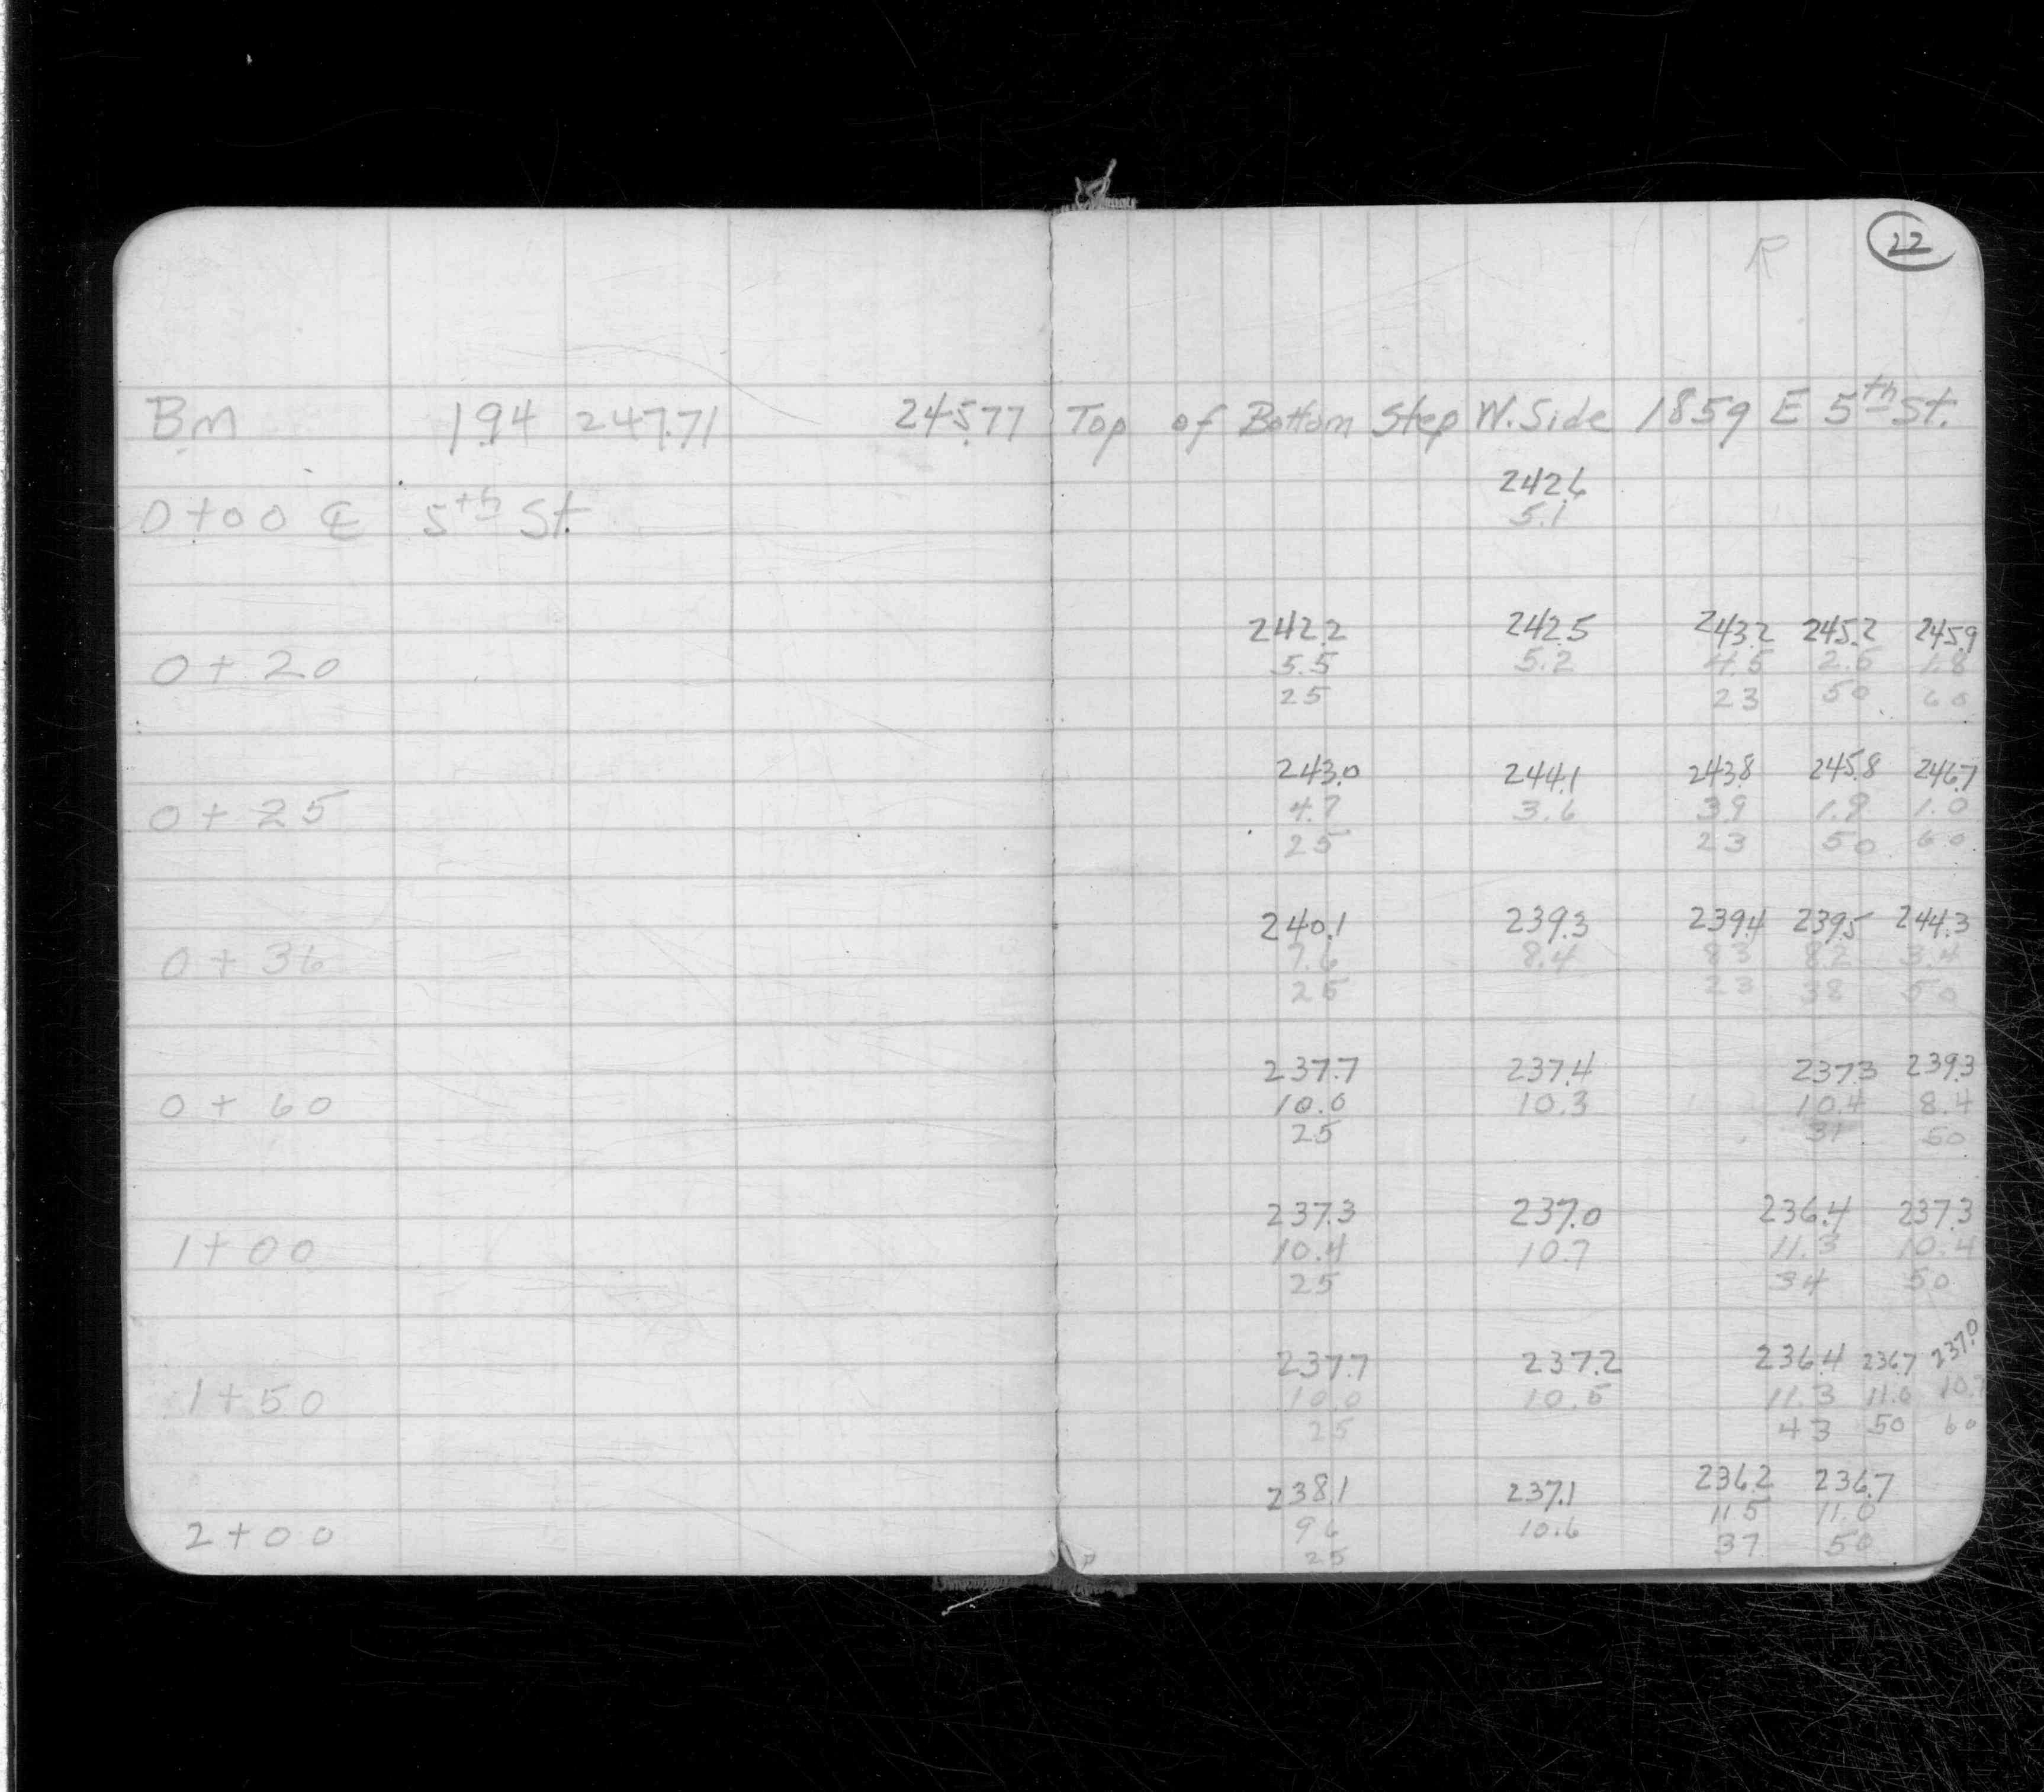 22
R
BM 1.94 247.71 245.77 Top of Bottom Step W. Side 1859 E 5th St.
242.6
0+00 ℄ 5th St. 5.1
242.2 242.5 243.2 245.2 245.9
0+20 5.5 5.2 4.5 2.5 1.8
25 23 50 60
243.0 244.1 243.8 245.8 246.7
0+25 4.7 3.6 3.9 1.9 1.0
25 23 50 60
240.1 239.3 239.4 239.5 244.3
0+36 7.6 8.4 8.3 8.2 3.4
25 23 38 50
237.7 237.4 237.3 239.3
0+60 10.0 10.3 10.4 8.4
25 31 50
237.3 237.0 236.4 237.3
1+00 10.4 10.7 11.3 10.4
25 34 50
237.7 237.2 236.4 236.7 237.0
1+50 10.0 10.5 11.3 11.0 10.7
25 43 50 60
238.1 237.1 236.2 236.7
2+00 9.6 10.6 11.5 11.0
25 37 50